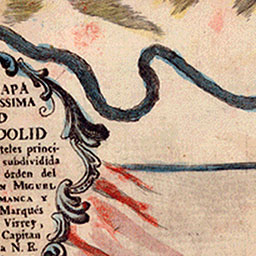 APA
SSIMA
D
DOLID
teles princi-
subdividida
órden del
N MIGUEL
MANCA Y
Marqués
Virrey,
Capitan
a N. R.